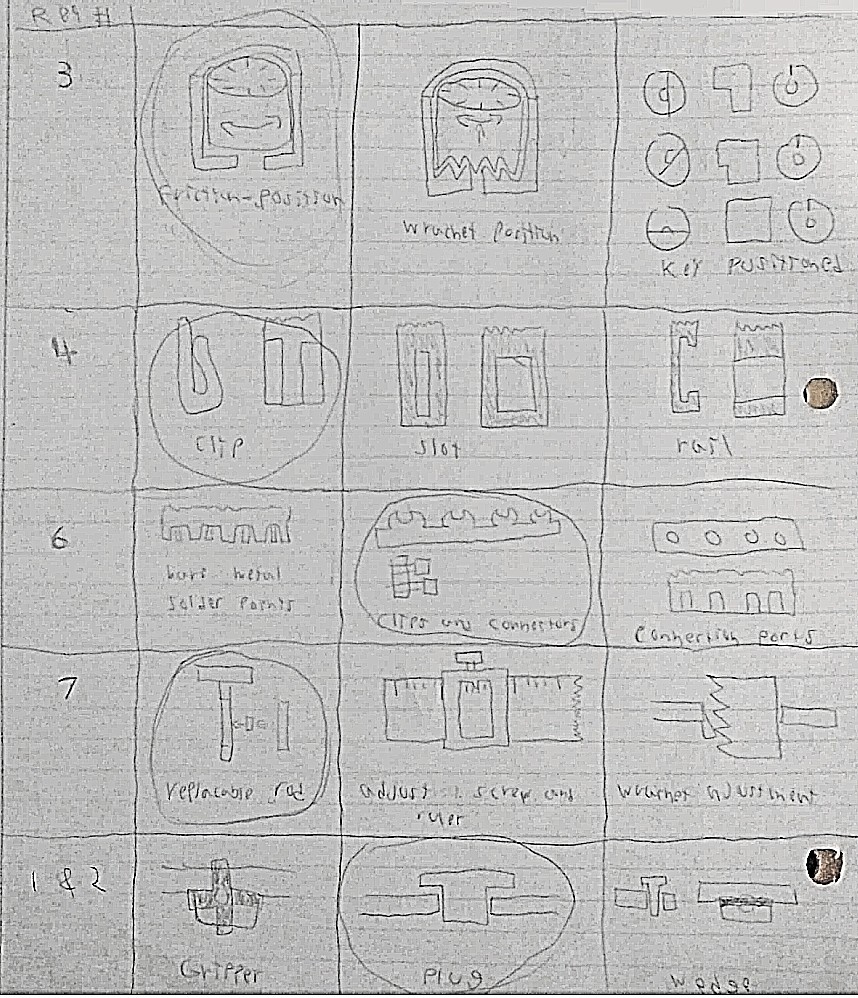 R 89 #1
3
friction-position
wrachet position
Key positioned
4
clip
slot
rail
6
bare metal
solder points
clips and connectors
Connection ports
7
replacable rod
adjust screw and
ruler
wrachet adjustment
1 & 2
Gripper
plug
wedge